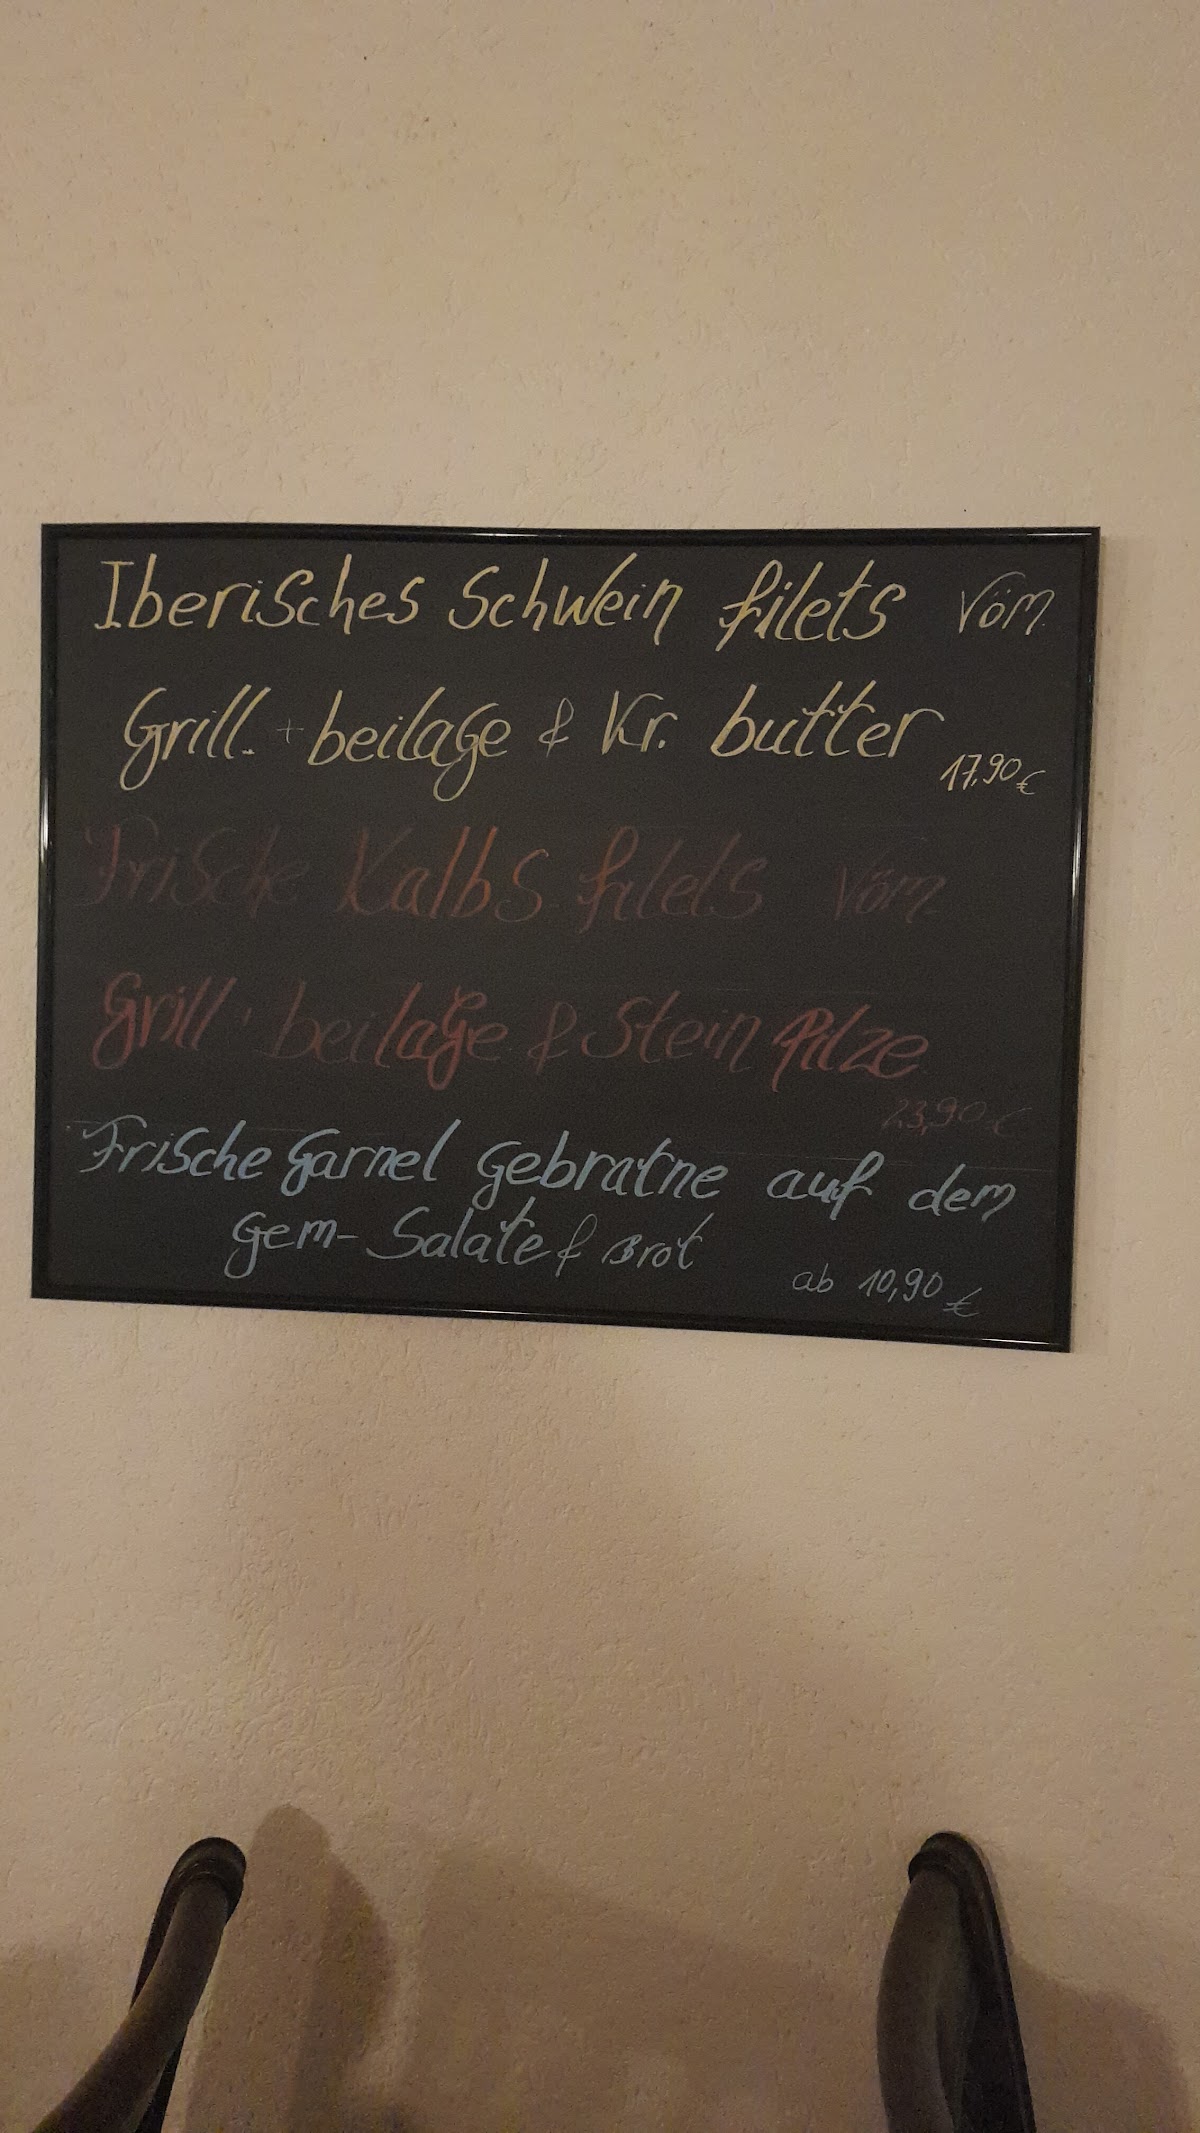 Iberisches Schwein filets Vöm
Grill. + beilage & Kr. butter
17,90 €
Frische Kalbs filets Vöm
Grill + beilage & Stein Pilze
23,90 €
Frische Garnel gebratne auf dem
Gem- Salate & Brot
ab 10,90 €